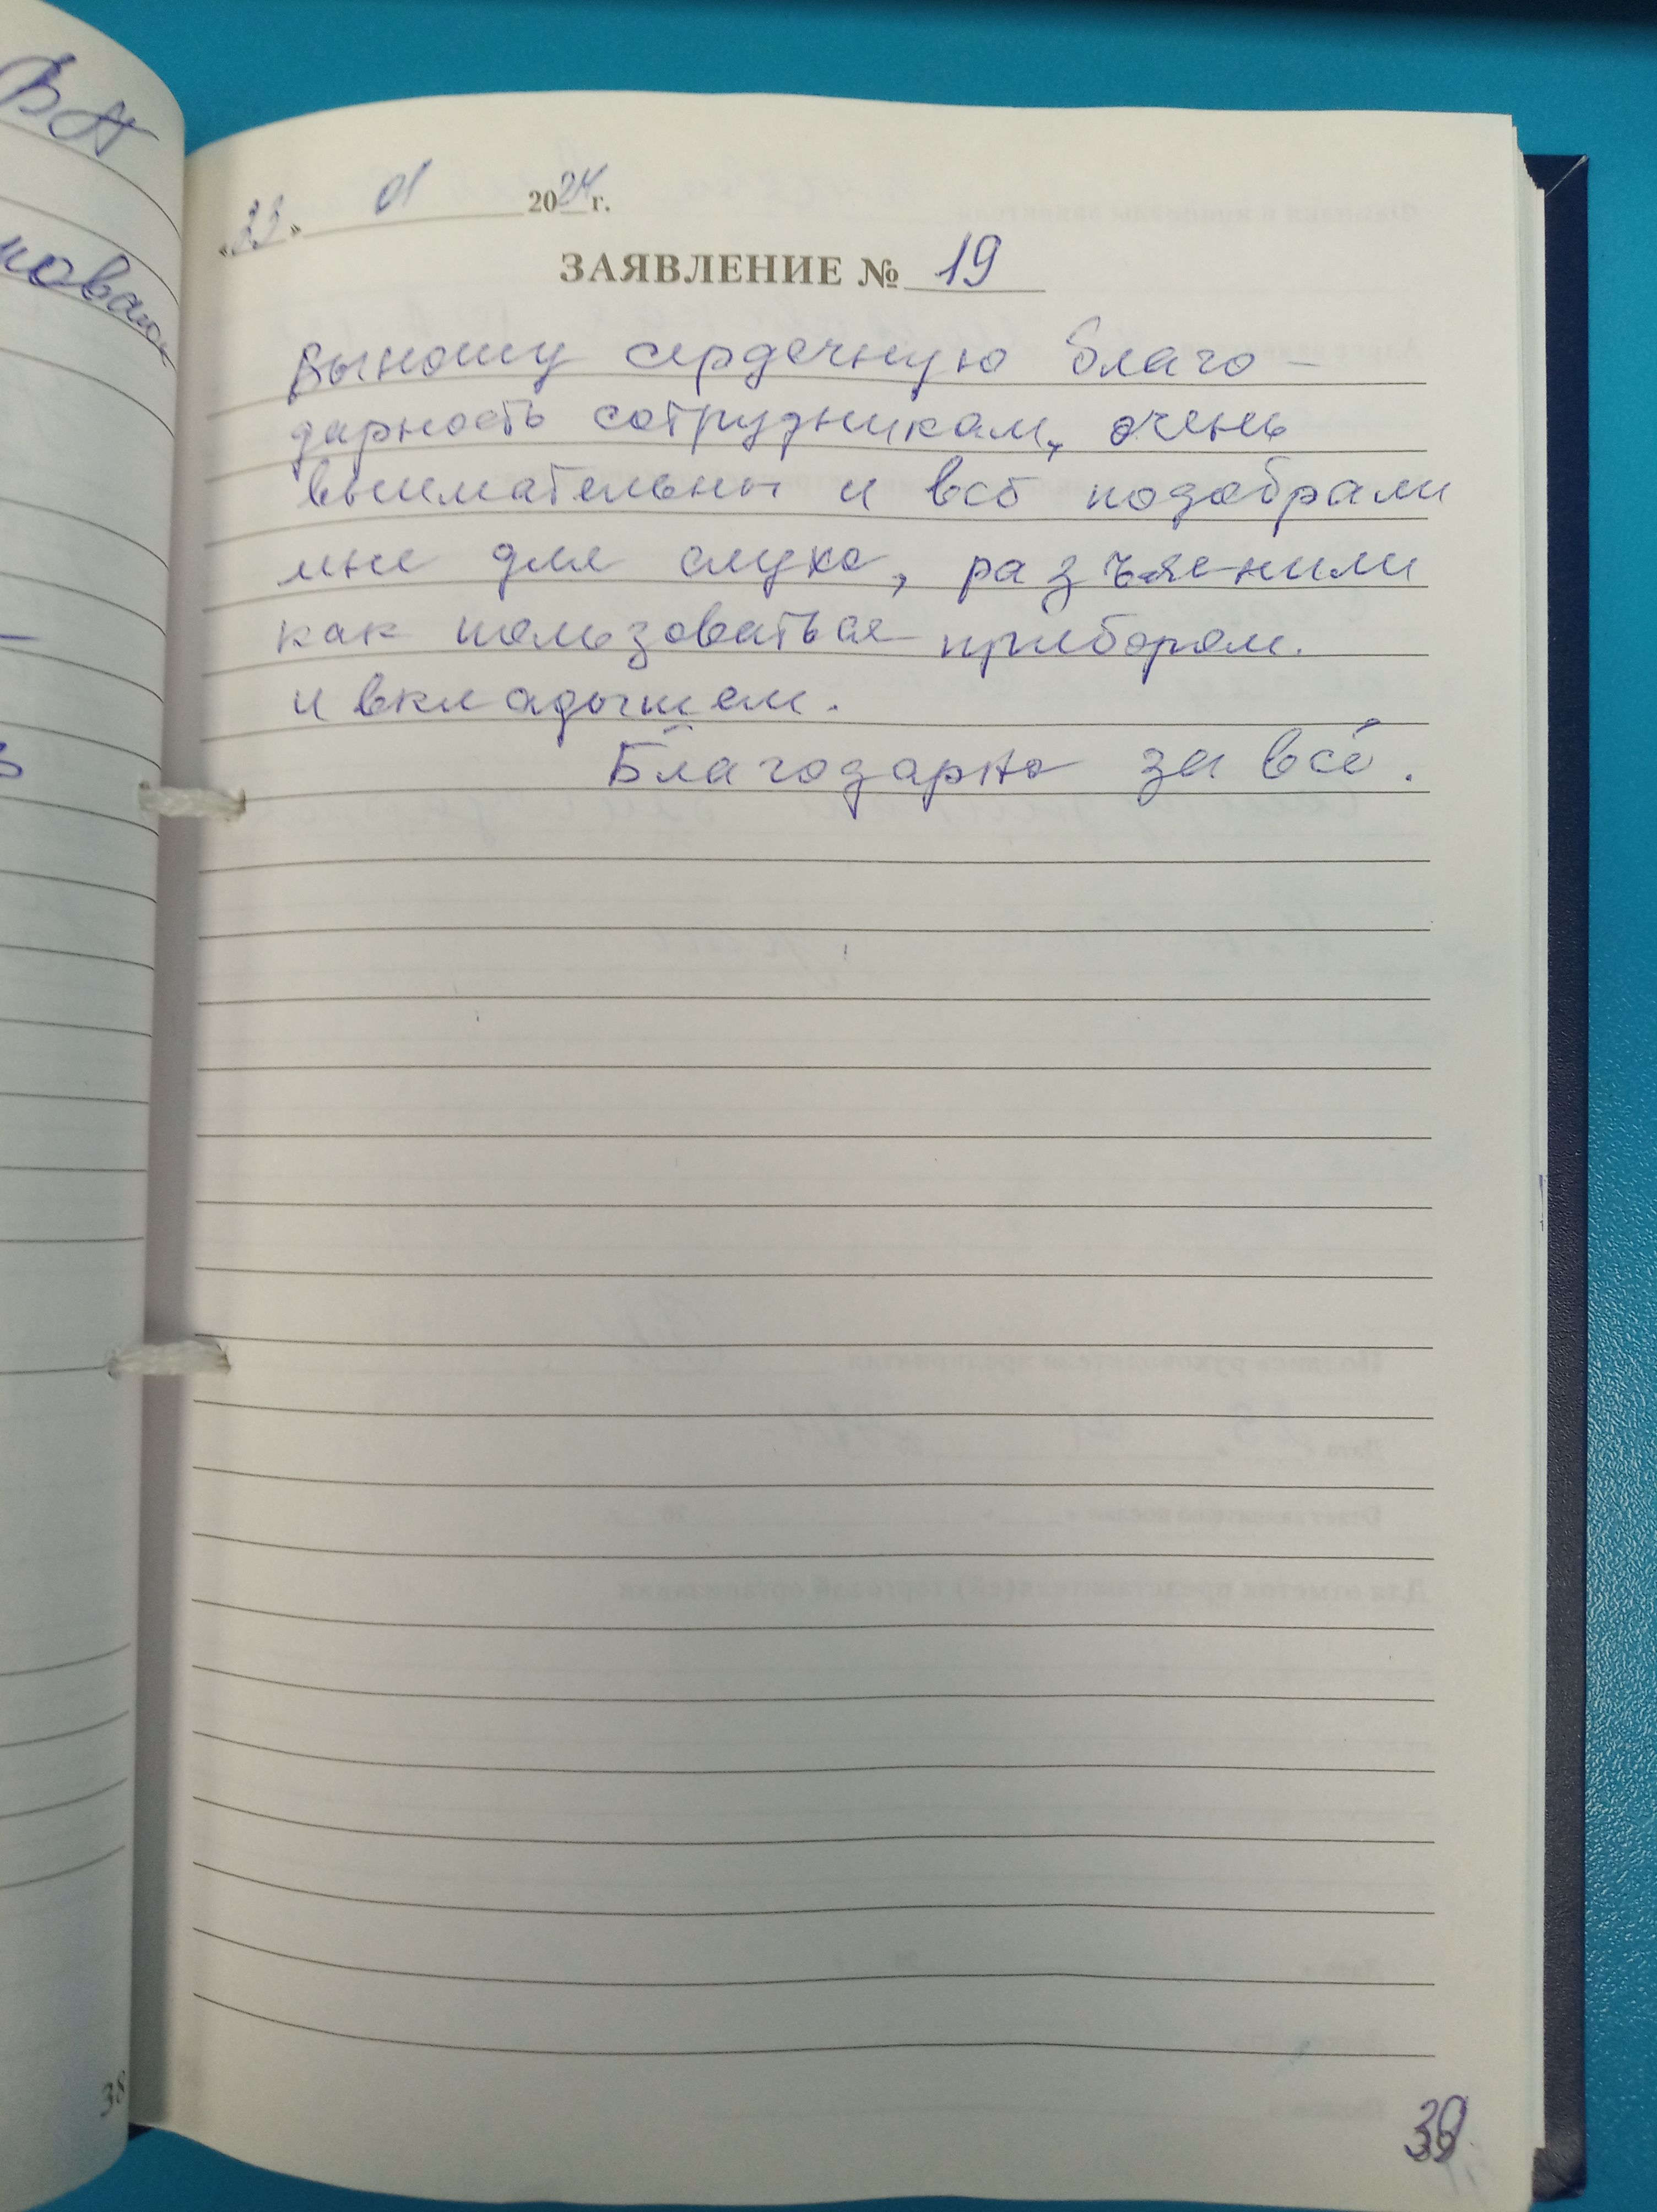 ВА
«23» 01 2024 г.
ЗАЯВЛЕНИЕ № 19
Выношу сердечную благо-
дарность сотрудникам, очень
внимательны и всё подобрали
мне для слуха, разъяснили
как пользоваться прибором.
и вкладышем.
Благодарна за всё.
38
39